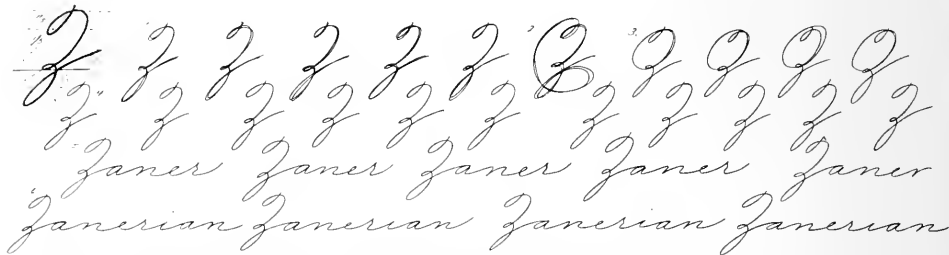 Z Z Z Z Z Z 2 Z 3. Z Z Z Z
Z Z Z Z Z Z Z Z Z Z Z
Zaner Zaner Zaner Zaner Zaner
Zanerian Zanerian Zanerian Zanerian